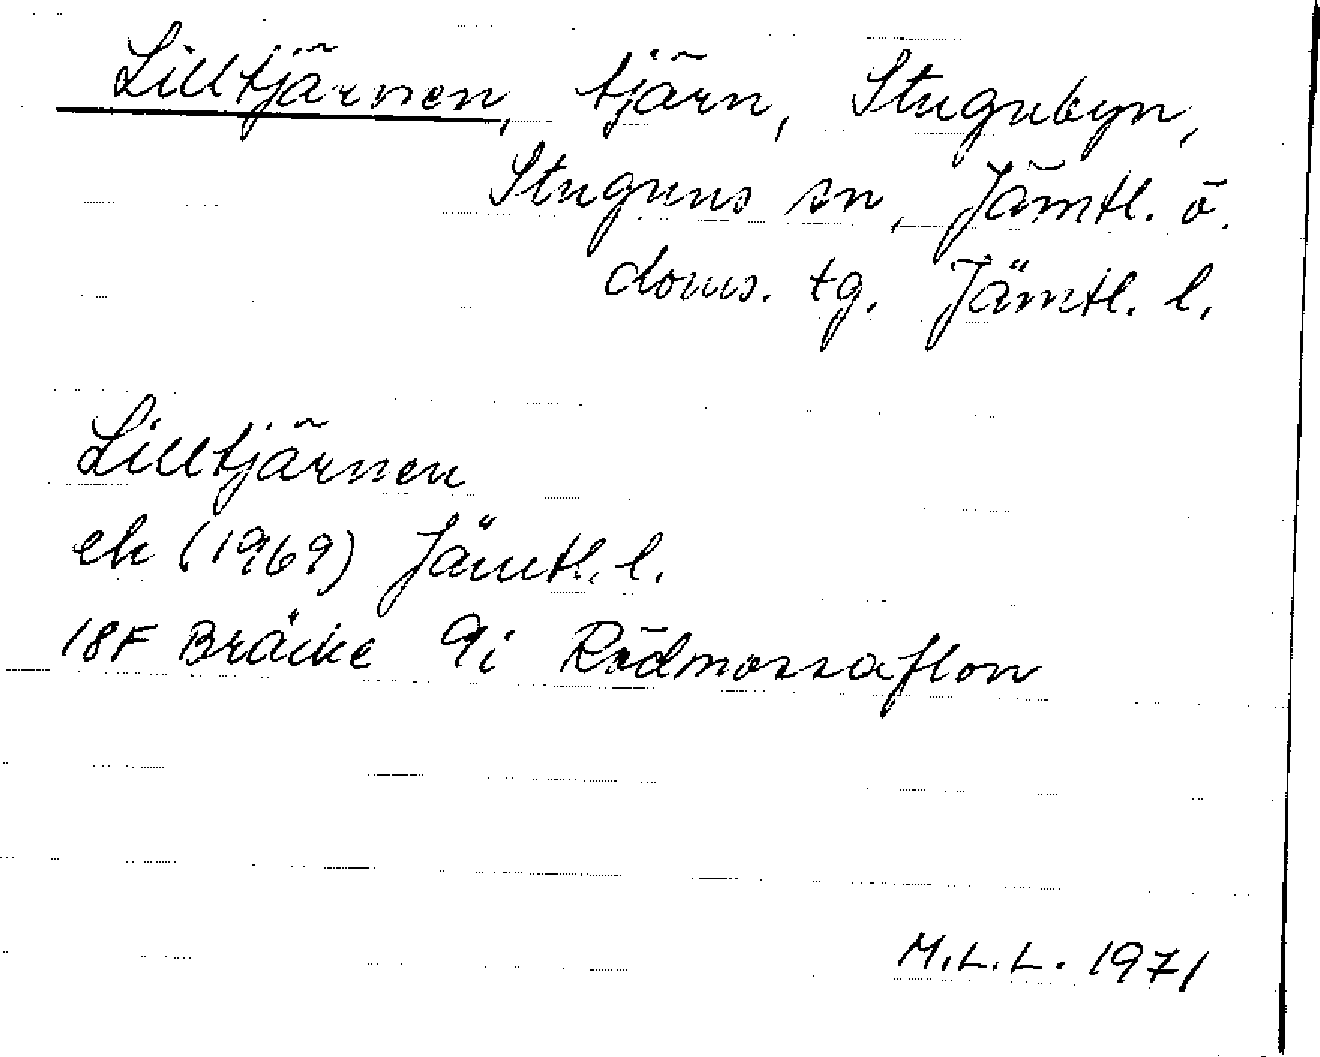 Lilltjärnen, tjärn, Stugubyn,
Stuguns sn, Jämtl. ö.
doms. tg. Jämtl. l.
Lilltjärnen
ek (1969) Jämtl. l.
18F Bräcke 9i Rödmossaflon
M.L.L. 1971